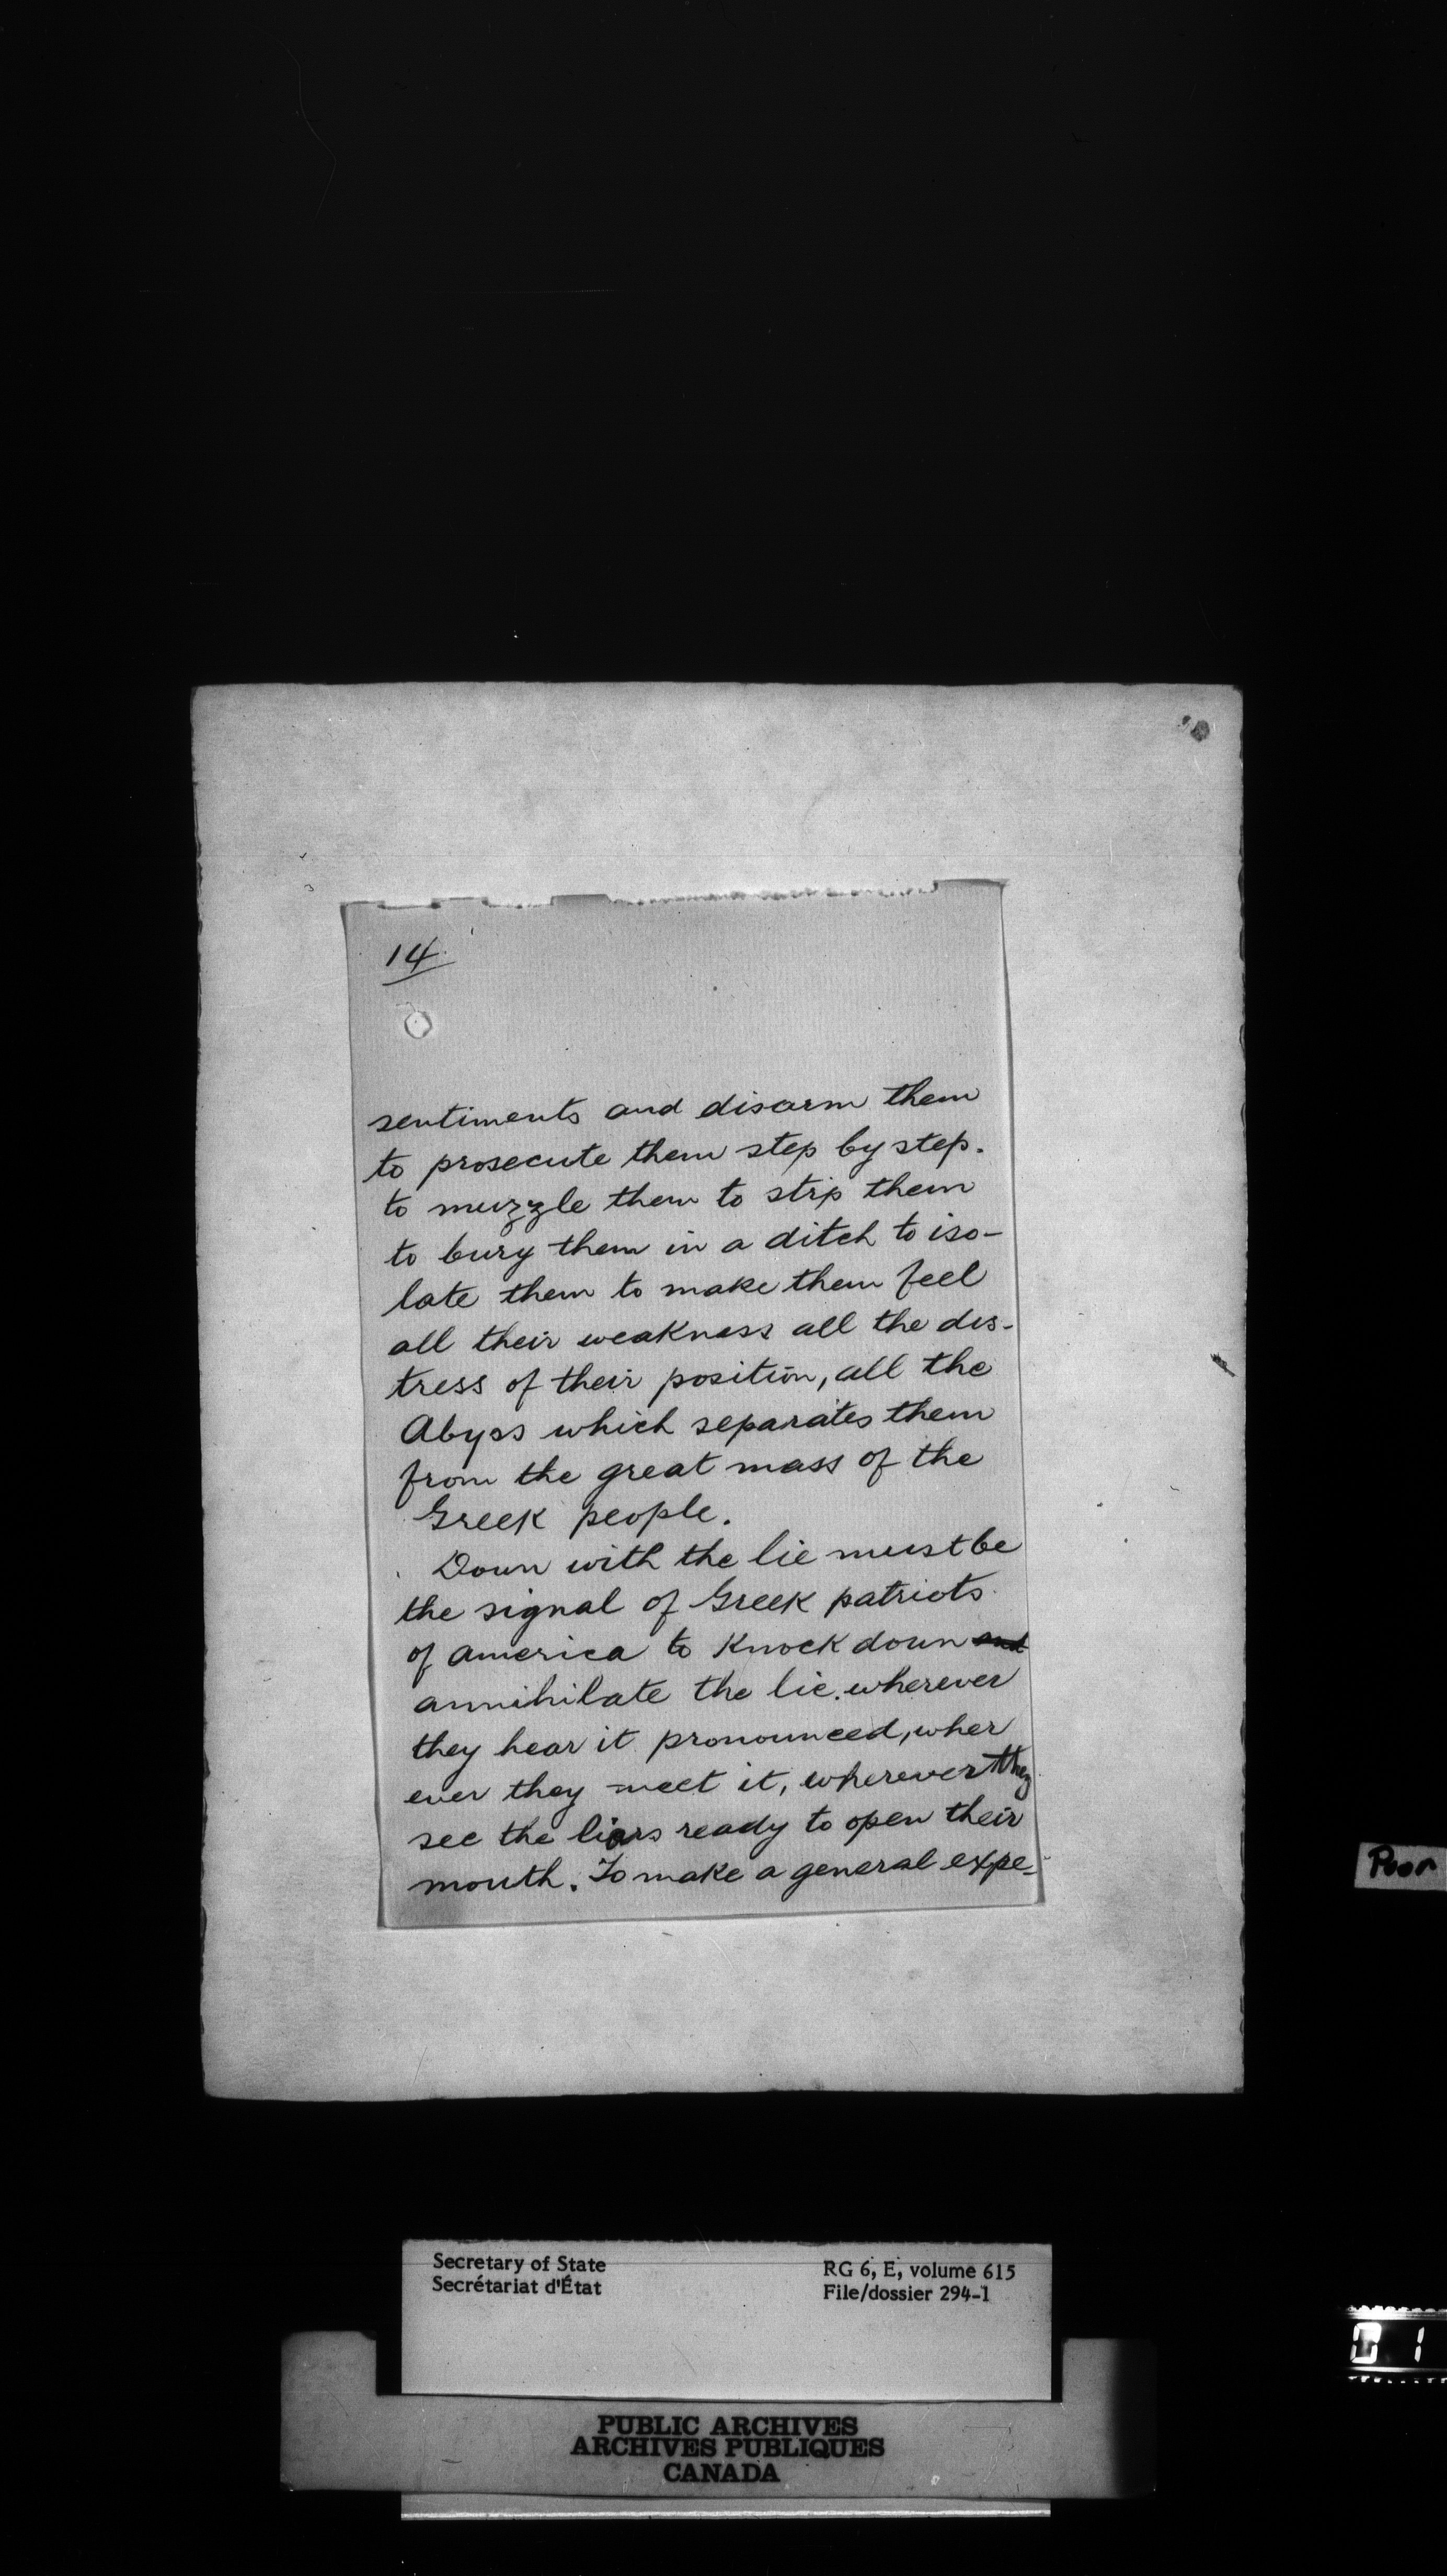 14
sentiments and disarm them
to prosecute them step by step.
to muzzle them to strip them
to bury them in a ditch to iso-
late them to make them feel
all their weakness all the dis-
tress of their position, all the
Abyss which separates them
from the great mass of the
Greek people.
Down with the lie must be
the signal of Greek patriots
of america to Knock down and
annihilate the lie. wherever
they hear it pronounced, wher
ever they meet it, wherever they
see the liars ready to open their
mouth. To make a general expe-
Poor
Secretary of State
Secrétariat d'État
RG 6, E, volume 615
File/dossier 294-1
01
PUBLIC ARCHIVES
ARCHIVES PUBLIQUES
CANADA